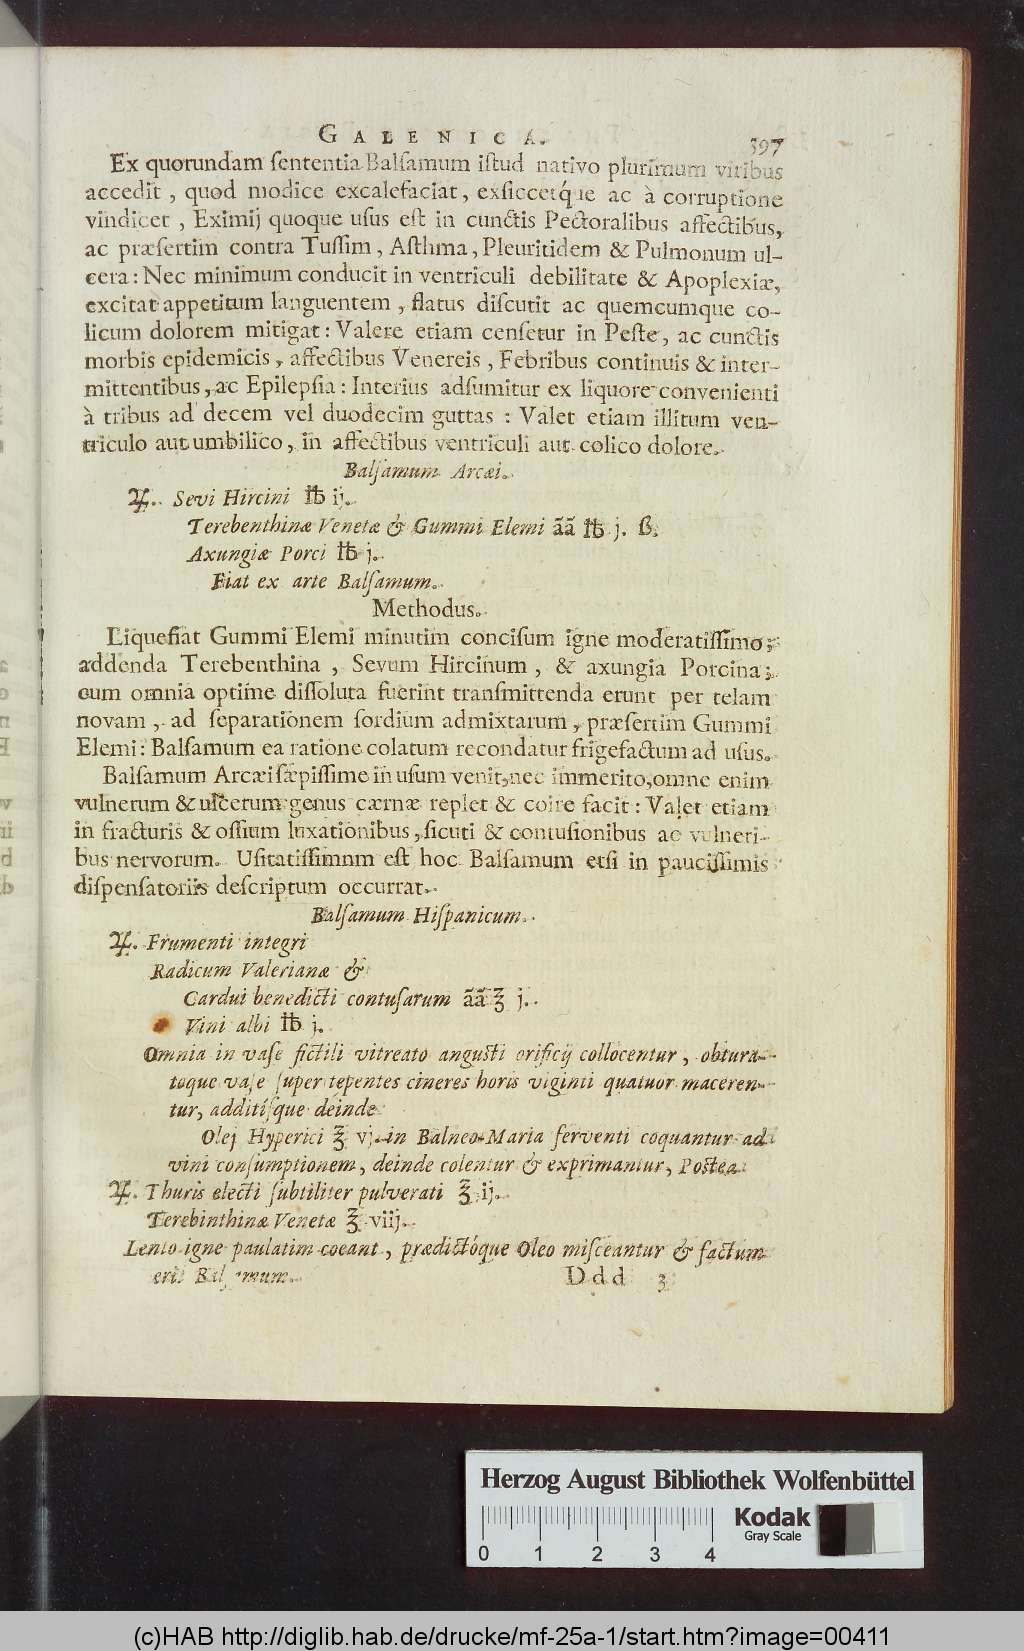 GALENICA. 397
Ex quorundam ſententia Balſamum iſtud nativo plurimum viribus
accedit, quod modice excalefaciat, exſiccetq́ue ac à corruptione
vindicet, Eximij quoque uſus eſt in cunctis Pectoralibus affectibus,
ac præſertim contra Tuſſim, Aſthma, Pleuritidem & Pulmonum ul-
cera: Nec minimum conducit in ventriculi debilitate & Apoplexiæ,
excitat appetitum languentem, flatus diſcutit ac quemcumque co-
licum dolorem mitigat: Valere etiam cenſetur in Peſte, ac cunctis
morbis epidemicis, affectibus Venereis, Febribus continuis & inter-
mittentibus, ac Epilepſia: Interius adſumitur ex liquore convenienti
à tribus ad decem vel duodecim guttas: Valet etiam illitum ven-
triculo aut umbilico, in affectibus ventriculi aut colico dolore.
Balſamum Arcæi.
♃. Sevi Hircini ℔ ij.
Terebenthinæ Venetæ & Gummi Elemi ãã ℔ j. ß.
Axungiæ Porci ℔ j.
Fiat ex arte Balſamum.
Methodus.
Liquefiat Gummi Elemi minutim conciſum igne moderatiſſimo,
addenda Terebenthina, Sevum Hircinum, & axungia Porcina;
cum omnia optime diſſoluta fuerint tranſmittenda erunt per telam
novam, ad ſeparationem ſordium admixtarum, præſertim Gummi
Elemi: Balſamum ea ratione colatum recondatur frigefactum ad uſus.
Balſamum Arcæi ſæpiſſime in uſum venit, nec immerito, omne enim
vulnerum & ulcerum genus cærnæ replet & coire facit: Valet etiam
in fracturis & oſſium luxationibus, ſicuti & contuſionibus ac vulneri-
bus nervorum. Uſitatiſſimnm eſt hoc Balſamum etſi in pauciſſimis
diſpenſatoriis deſcriptum occurrat.
Balſamum Hiſpanicum.
♃. Frumenti integri
Radicum Valerianæ &
Cardui benedicti contuſarum ãã ℥ j.
Vini albi ℔ j.
Omnia in vaſe fictili vitreato anguſti orificij collocentur, obtura-
toque vaſe ſuper tepentes cineres horis viginti quatuor maceren-
tur, additiſque deinde
Olej Hyperici ℥ vj. in Balneo-Maria ferventi coquantur ad
vini conſumptionem, deinde colentur & exprimantur, Poſtea
♃. Thuris electi ſubtiliter pulverati ℥ ij.
Terebinthinæ Venetæ ℥ viij.
Lento igne paulatim coeant, prædictóque Oleo miſceantur & factum
erit Balſamum.
Ddd 3
Herzog August Bibliothek Wolfenbüttel
Kodak
Gray Scale
0 1 2 3 4
(c)HAB http://diglib.hab.de/drucke/mf-25a-1/start.htm?image=00411